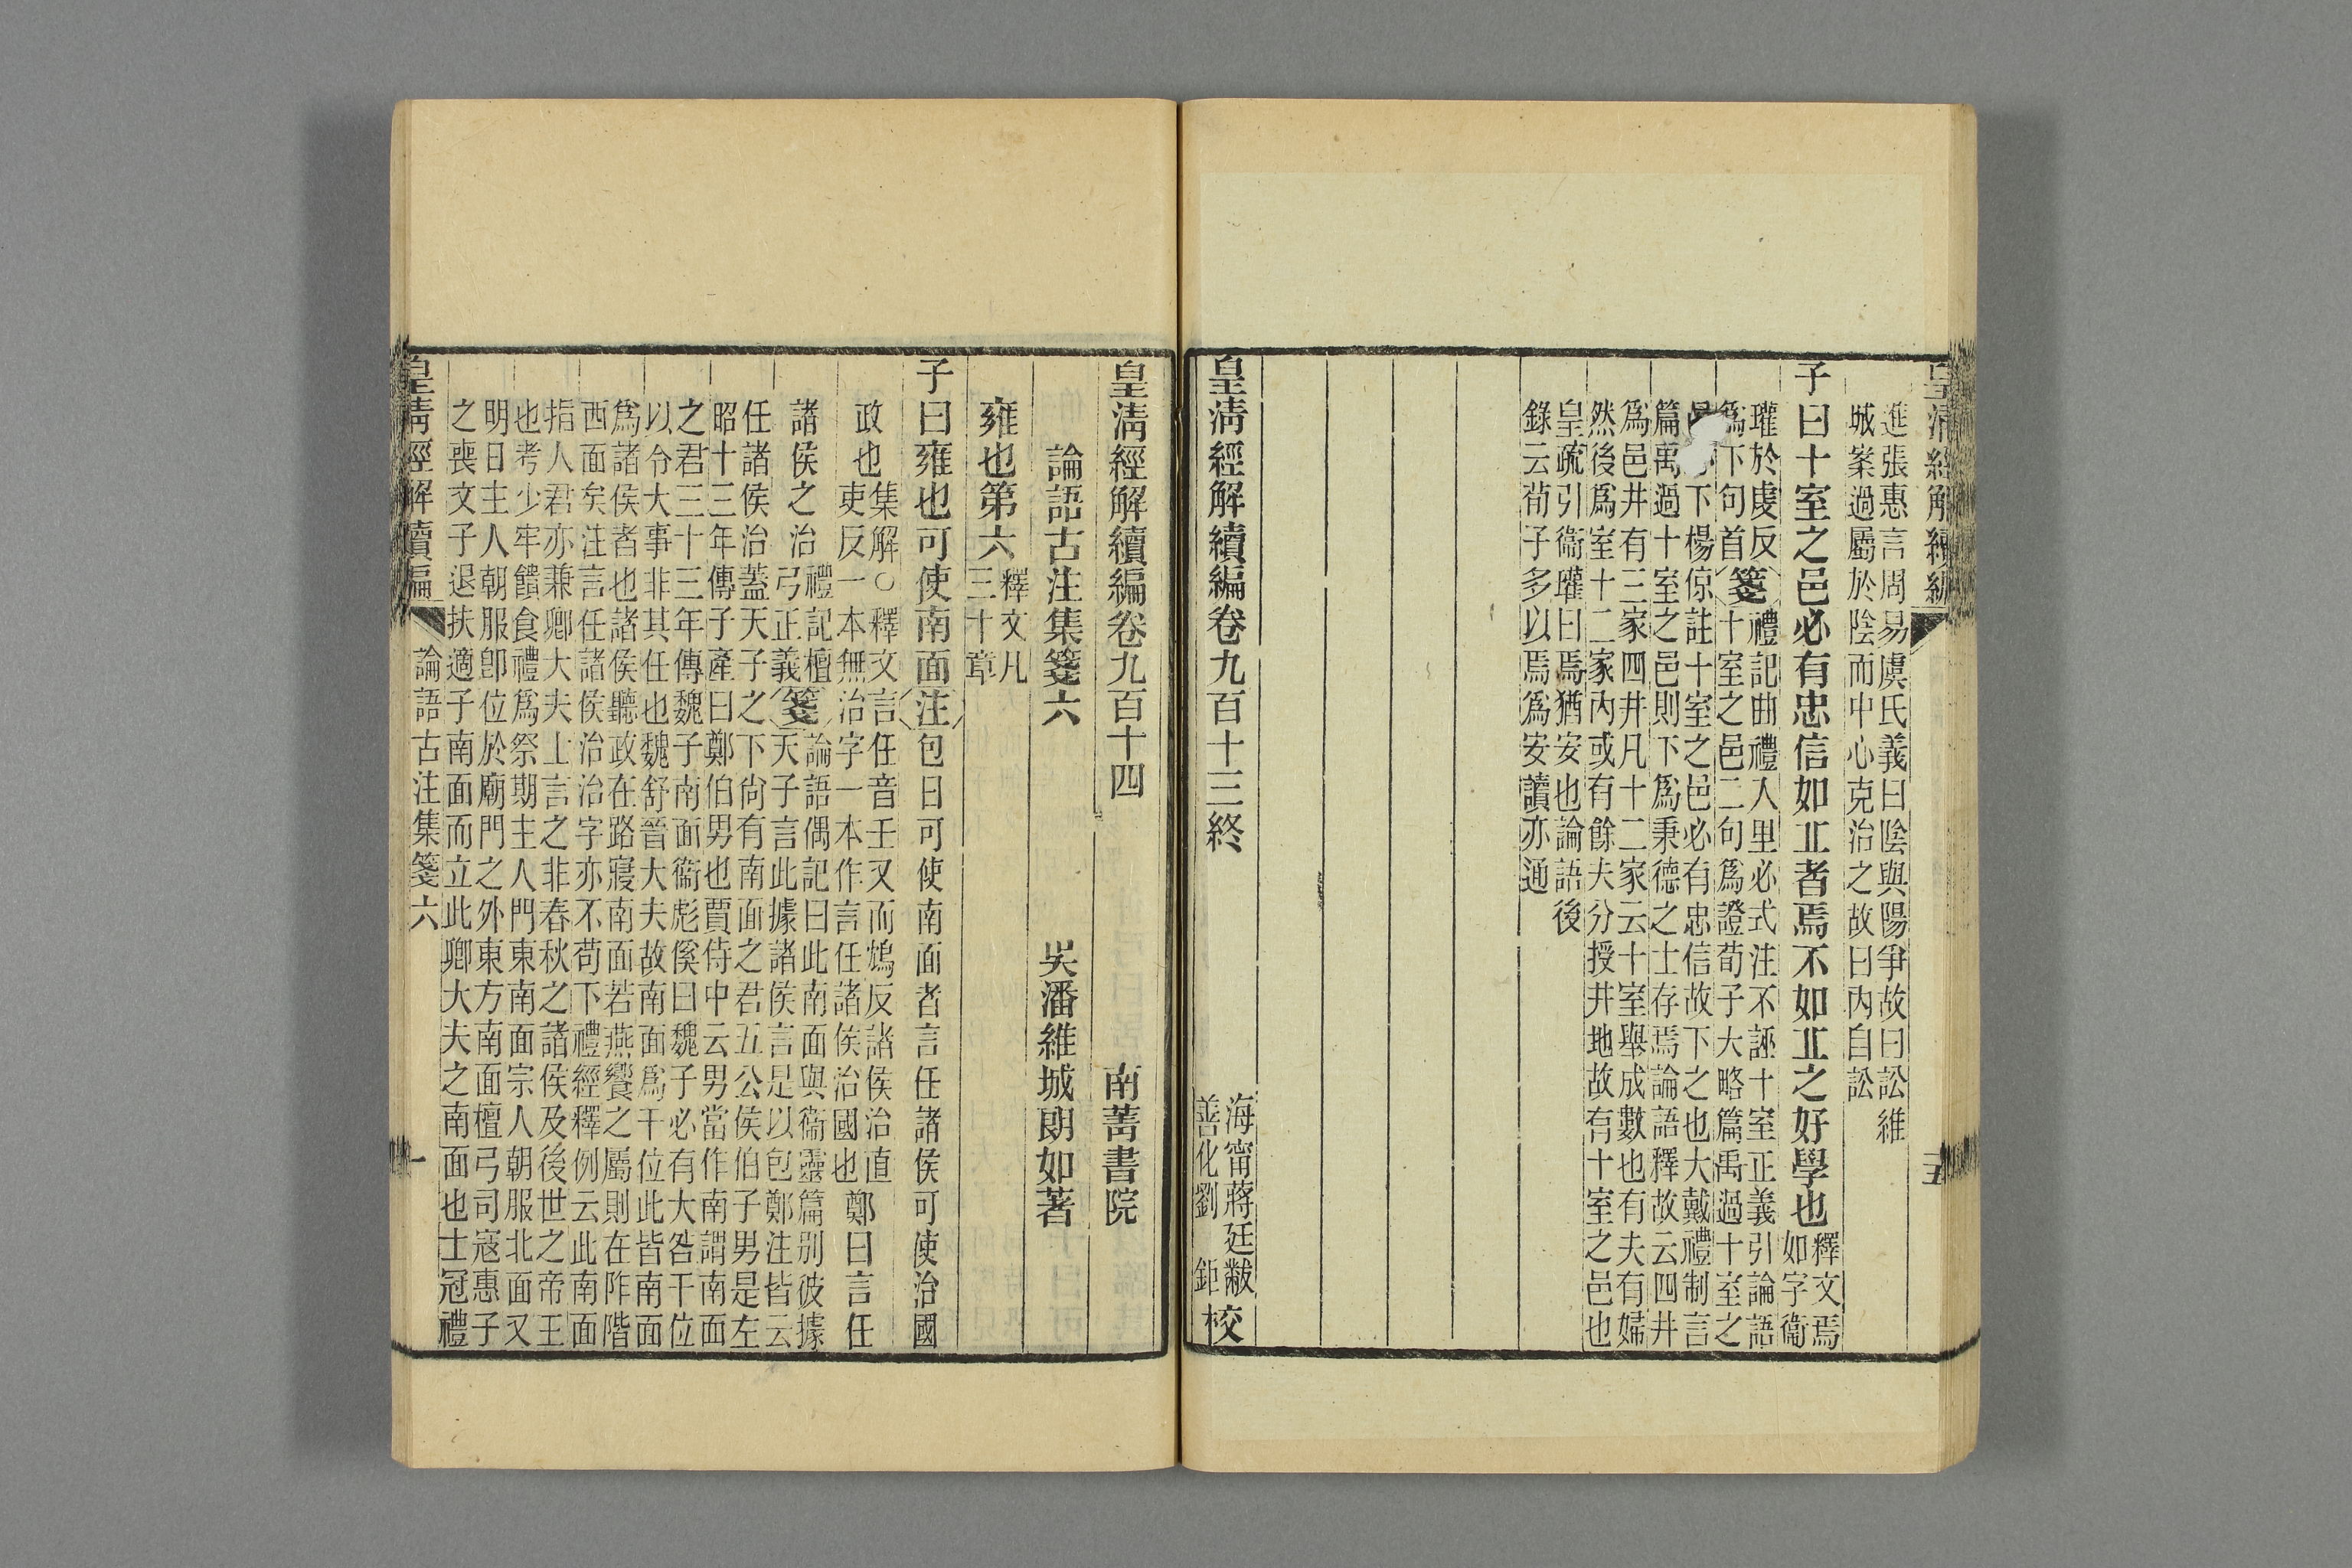 皇清經解續編 五
進張惠言周易虞氏義曰陰與陽爭故曰訟維
城案過屬於陰而中心克治之故曰內自訟
子曰十室之邑必有忠信如丘者焉不如丘之好學也釋文焉
如字衞
瓘於虔反
爲下句首箋禮記曲禮入里必式注不誣十室正義引論語
十室之邑二句爲證荀子大略篇禹過十室之
下楊倞註十室之邑必有忠信故下之也大戴禮制言
篇禹過十室之邑則下爲秉德之士存焉論語釋故云四井
爲邑井有三家四井凡十二家云十室舉成數也有夫有婦
然後爲室十二家內或有餘夫分授井地故有十室之邑也
皇疏引衞瓘曰焉猶安也論語後
錄云荀子多以焉爲安讀亦通
皇清經解續編卷九百十三終
海甯蔣廷黻
善化劉鉅
校
皇清經解續編卷九百十四 南菁書院
論語古注集箋六 吳潘維城朗如著
雍也第六釋文凡
三十章
子曰雍也可使南面注包曰可使南面者言任諸侯可使治國
政也集解○釋文言任音壬又而鴆反諸侯治直
吏反一本無治字一本作言任諸侯治國也鄭曰言任
諸侯之治禮記檀
弓正義箋論語偶記曰此南面與衞靈篇別彼據
天子言此據諸侯言是以包鄭注皆云
任諸侯治蓋天子之下尚有南面之君五公侯伯子男是左
昭十三年傳子產曰鄭伯男也賈侍中云男當作南謂南面
之君三十三年傳魏子南面衞彪傒曰魏子必有大咎干位
以令大事非其任也魏舒晉大夫故南面爲干位此皆南面
爲諸侯者也諸侯聽政在路寢南面若燕饗之屬則在阼階
西面矣注言任諸侯治治字亦不苟下禮經釋例云此南面
指人君亦兼卿大夫士言之非春秋之諸侯及後世之帝王
也考少牢饋食禮爲祭期主人門東南面宗人朝服北面又
明日主人朝服卽位於廟門之外東方南面檀弓司寇惠子
之喪文子退扶適子南面而立此卿大夫之南面也士冠禮
皇清經解續編 論語古注集箋六 一